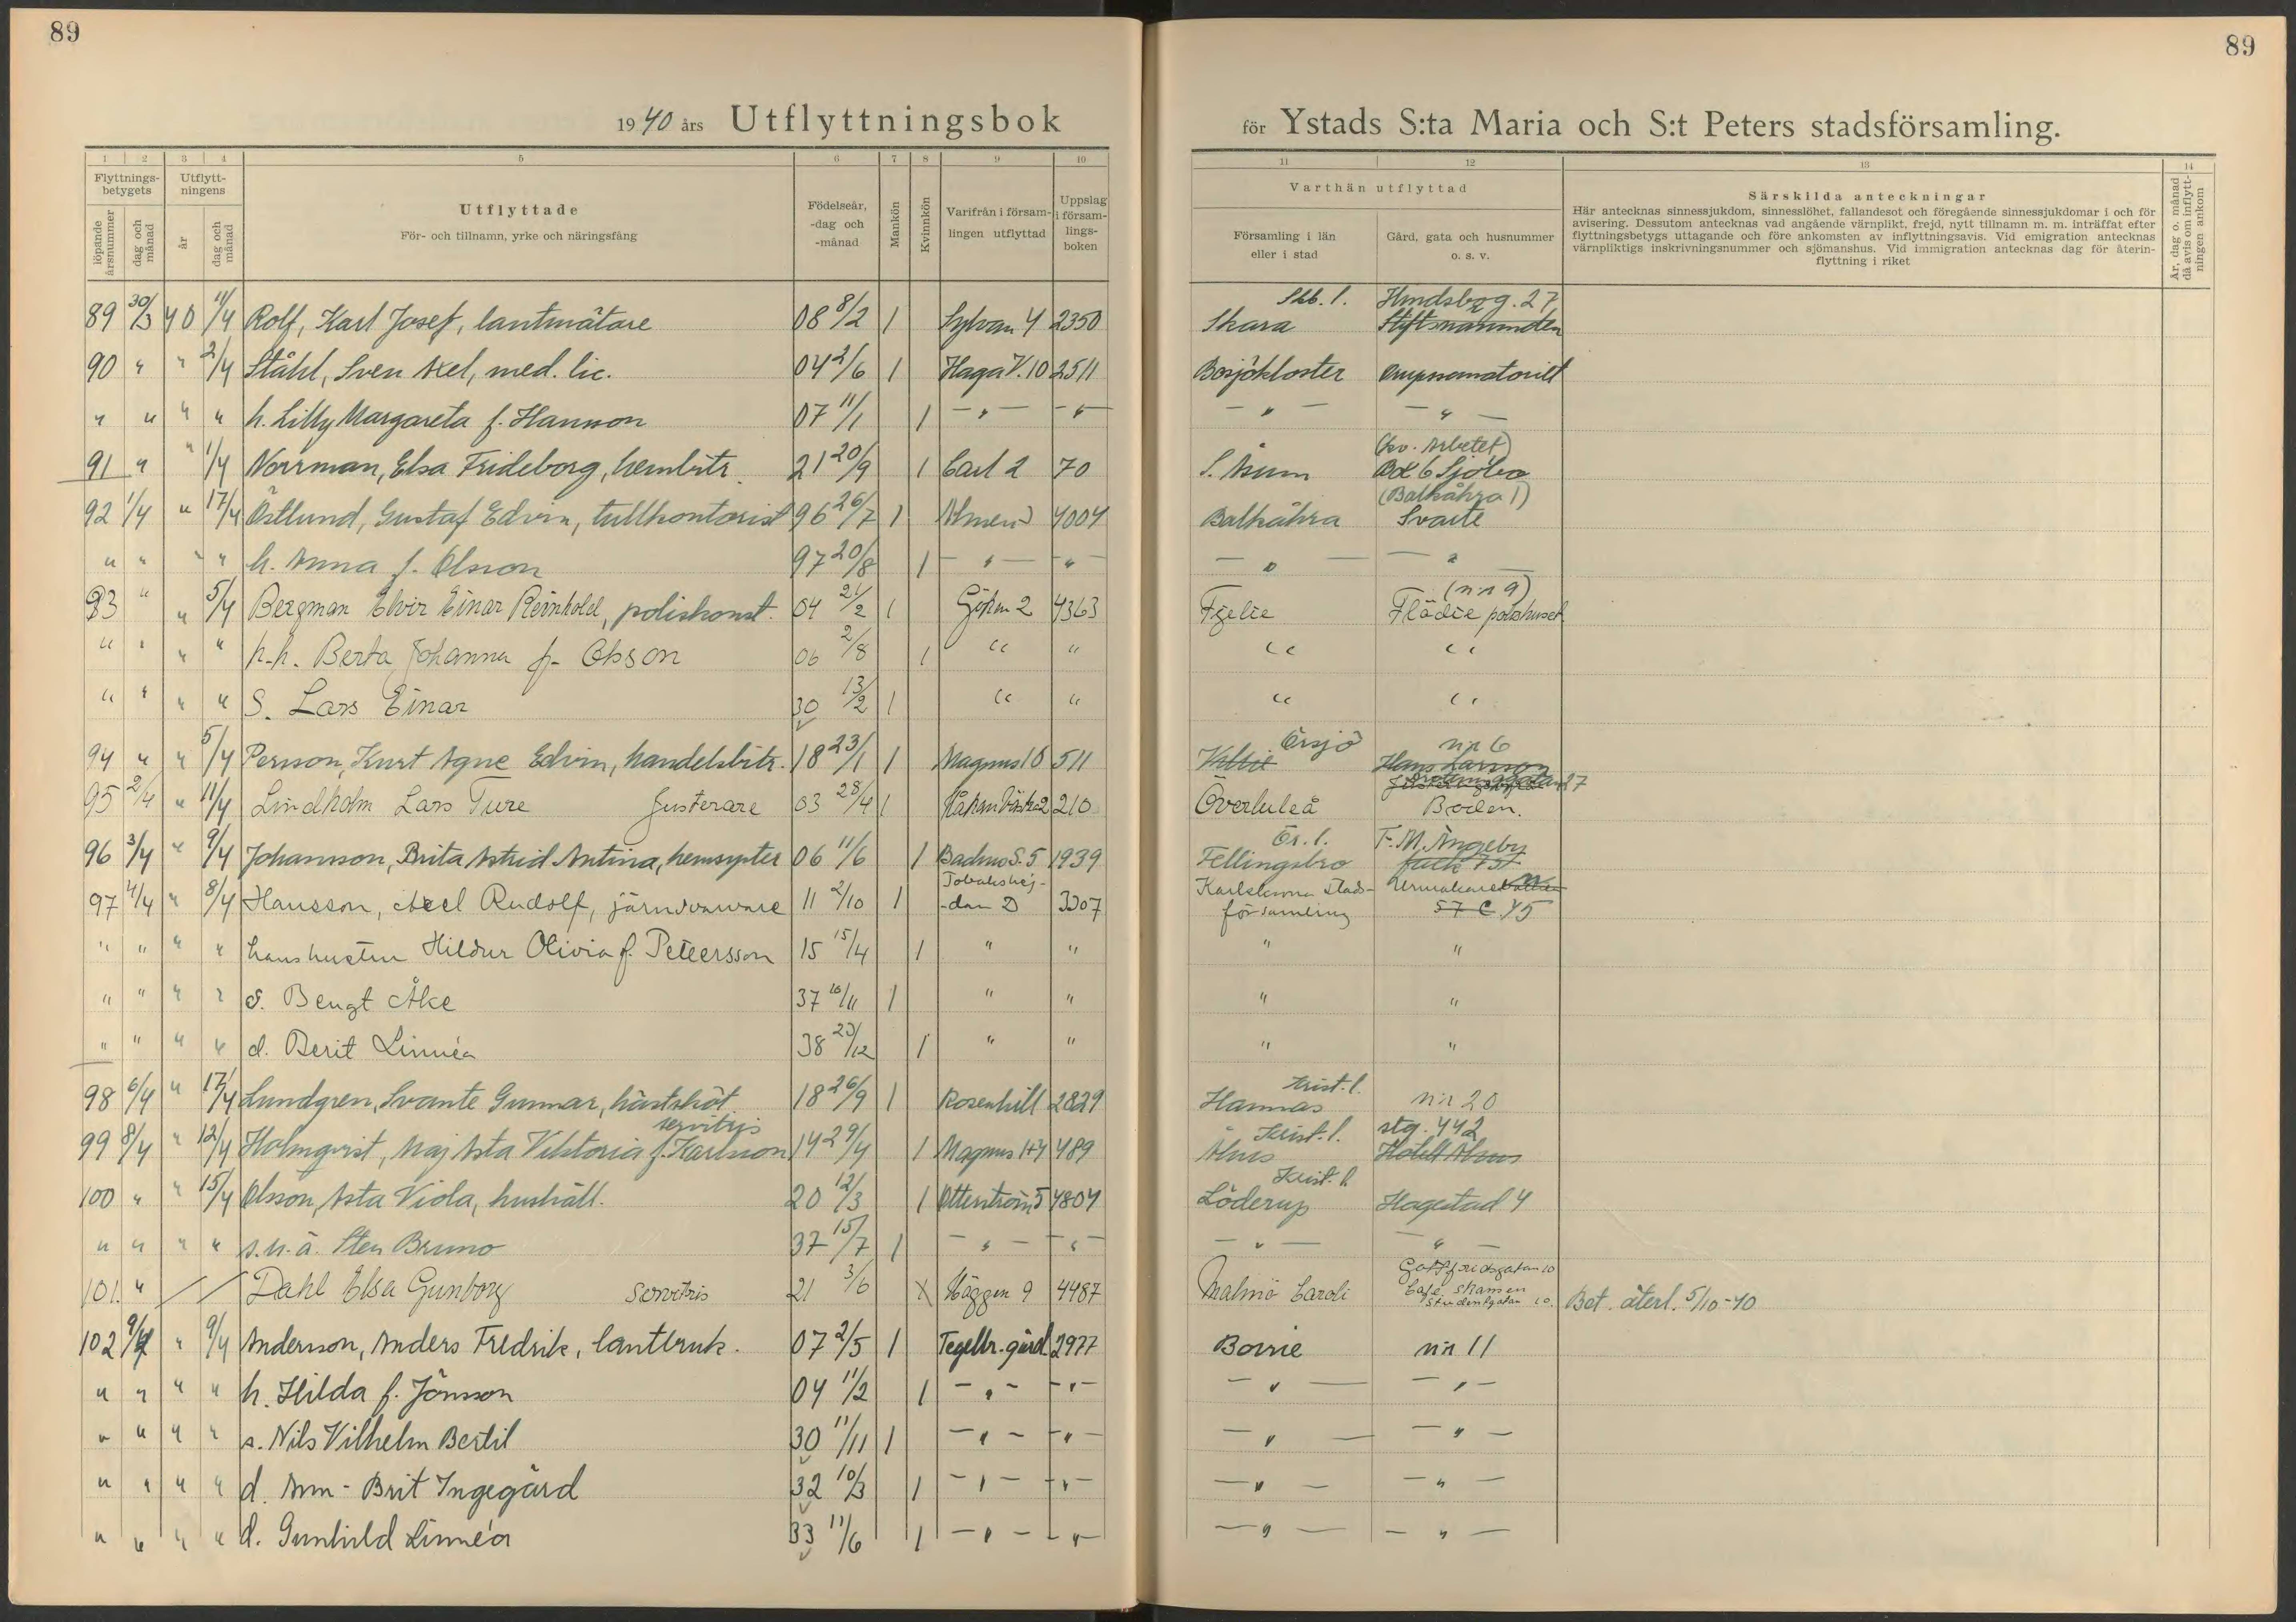 89
89
1940 års Utflyttningsbok
för Ystads S:ta Maria och S:t Peters stadsförsamling.
1 2 3 4 5 6 7 8 9 10
11 12 13 14
Flyttnings-betygets
Utflytt-ningens
löpande årsnummer
dag och månad
år
dag och månad
Utflyttade
För- och tillnamn, yrke och näringsfång
Födelseår, -dag och -månad
Mankön
Kvinnkön
Varifrån i försam-lingen utflyttad
Uppslag i försam-lings-boken
Varthän utflyttad
Församling i län eller i stad
Gård, gata och husnummer o. s. v.
Särskilda anteckningar
Här antecknas sinnessjukdom, sinnesslöhet, fallandesot och föregående sinnessjukdomar i och för
avisering. Dessutom antecknas vad angående värnplikt, frejd, nytt tillnamn m. m. inträffat efter
flyttningsbetygs uttagande och före ankomsten av inflyttningsavis. Vid emigration antecknas
värnpliktigs inskrivningsnummer och sjömanshus. Vid immigration antecknas dag för återin-
flyttning i riket
År, dag o. månad då avis om inflytt-ningen ankom
Skb. l. Hindsbog. 27
89 30/3 40 11/4 Rolf, Karl Josef, lantmätare 08 8/2 1 Sylvan 4 2350 Skara
90 " " 2/4 Ståhl, Sven Axel, med. lic. 04 2/6 1 Haga V. 10 2511 Bosjökloster
" " " " h. Lilly Margareta f. Hansson 07 11/1 1 - " - - " - - " - - " -
(kv. Arbetet)
91 " " 1/4 Norrman, Elsa Frideborg, hembitr. 21 20/9 1 Carl 2 70 S. Åsum Box 6 Sjöbo
(Balkåkra 1)
92 1/4 " 17/4 Östlund, Gustaf Edvin, tullkontorist 96 26/7 1 4004 Balkåkra Svarte
" " " " h. Anna f. Olsson 97 20/8 1 - " - " - - " - - " -
(n:r 9)
93 " " 5/4 Bergman Elvir Einar Reinhold, poliskonst. 04 21/2 1 Göken 2 4363 Fjelie Flädie polishuset
" " " " h.h. Berta Johanna f. Olsson 06 2/8 1 " " " "
" " " " S. Lars Einar 30 13/2 1 " " " "
Örsjö n:r 6
94 " " 5/4 Persson, Kurt Agne Edvin, handelsbitr. 18 23/1 1 Magnus 16 511 Villie Hans Larsson
95 2/4 " 11/4 Lindholm Lars Ture Justerare 03 28/4 1 210 Överluleå Boden.
Ör. l. F. M. Ängeby
96 3/4 " 9/4 Johansson, Brita Astrid Antina, hemsyster 06 11/6 1 Backus S. 5 1939 Fellingsbro fack 737
97 4/4 " 8/4 Hansson, Axel Rudolf, 11 2/10 1 -dan D 3307 Karlskrona stads-
församling 57 C 45
" " " " hans hustru Hildur Olivia f. Petersson 15 15/4 1 " " " "
" " " " s. Bengt Åke 37 16/11 1 " " " "
" " " " d. Berit Linnéa 38 23/12 1 " " " "
Krist. l.
98 6/4 " 17/4 Lundgren, Svante Gunnar, hästsköt. 18 26/9 1 Rosenhill 2829 Hannas n:r 20
servitris Krist. l. stg. 442
99 8/4 " 12/4 Holmqvist, Maj Asta Viktoria f. Karlsson 14 29/4 1 Magnus 1+4 489 Åhus Hotell Åhus
Krist. l.
100 " " 15/4 Olsson, Asta Viola, hushåll. 20 12/3 1 Ottenström 5 4804 Löderup Hagestad 4
" " " " s. u. ä. Sten Bruno 37 15/7 1 - " - - " - - " - - " -
Gottfridsgatan 10
101. " Dahl Elsa Gunborg Servitris 21 3/6 X Häggen 9 4487 Malmö Caroli Café Skansen
Studentgatan 10. Bet. återl. 5/10-40
102 9/4 " 9/4 Andersson, Anders Fredrik, lantbruk. 07 2/5 1 Tegelbr. gård 2977 Borrie n:r 11
" " " " h. Hilda f. Jönsson 04 11/2 1 - " - - " - - " - - " -
" " " " s. Nils Vilhelm Bertil 30 11/11 1 - " - - " - - " - - " -
" " " " d. Ann-Brit Ingegärd 32 10/3 1 - " - - " - - " - - " -
" " " " d. Gunhild Linnéa 33 11/6 1 - " - - " - - " - - " -